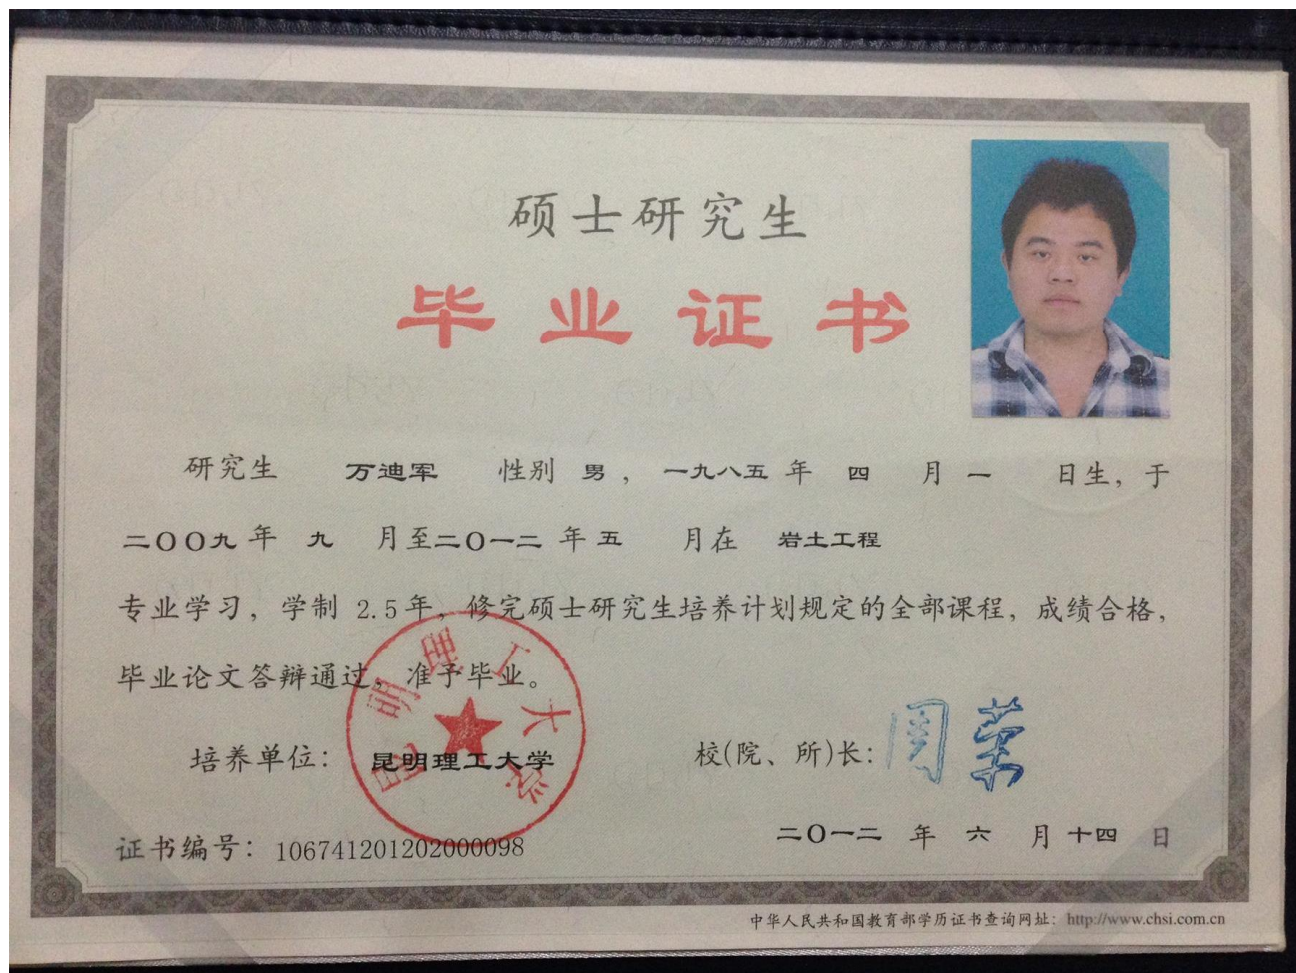 硕士研究生
毕业证书
研究生 万迪军 性别 男，一九八五 年 四 月 一 日生，于
二〇〇九 年 九 月至二〇一二 年 五 月在 岩土工程
专业学习，学制 2.5年，修完硕士研究生培养计划规定的全部课程，成绩合格，
毕业论文答辩通过，准予毕业。
昆明理工大学
培养单位：昆明理工大学 校(院、所)长：周荣
证书编号：106741201202000098 二〇一二 年 六 月 十四 日
中华人民共和国教育部学历证书查询网址：http://www.chsi.com.cn